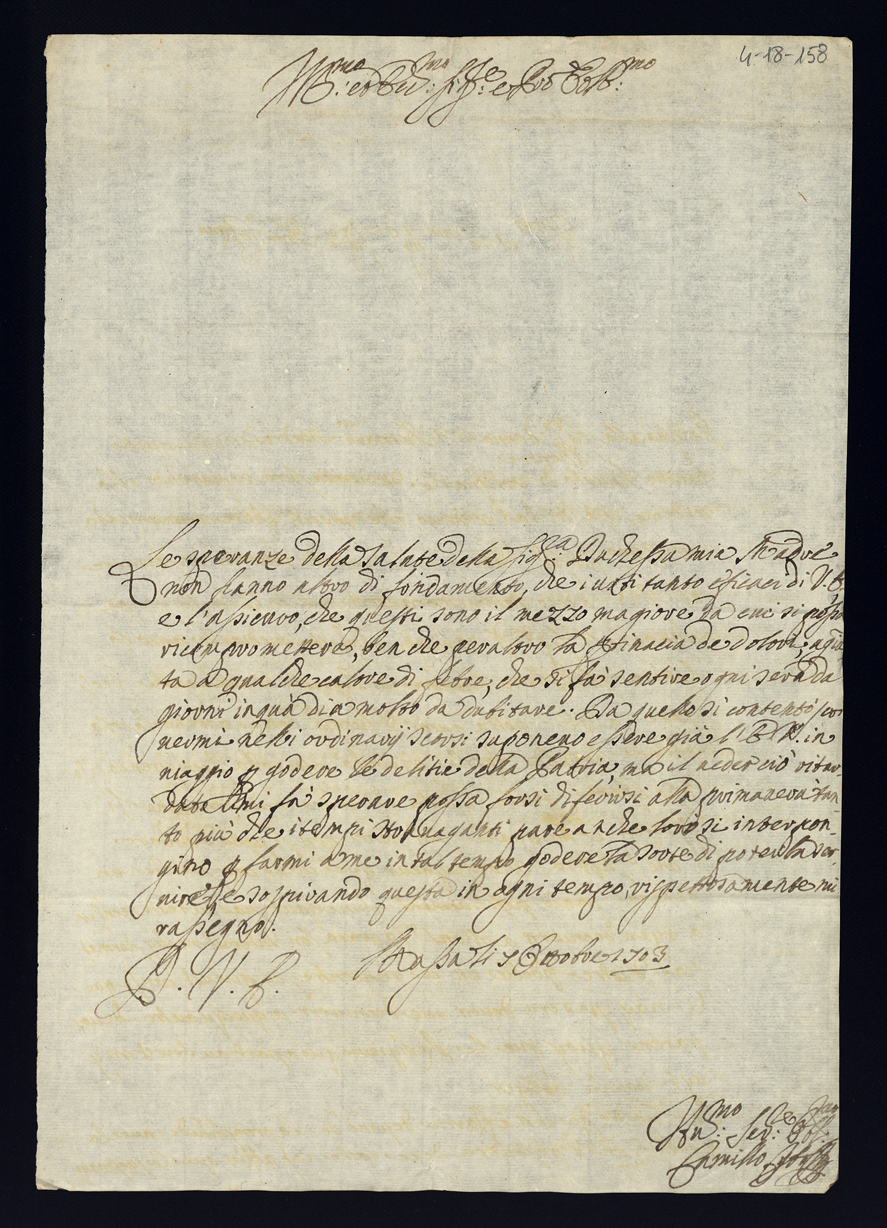 4-18-158
Ill.mo et Ecc.mo Sig.re e Pro.n Col.mo
Le speranze della salute della Sig.ra Duchessa mia Madre
non hanno altro di fondamento, che i voti tanto efficaci di V. E.
e l'assicuro, che questi sono il mezzo magiore da cui si possa
ricompromettere, ben che per altro la ostinacia de dolori, agiun-
ta a qualche calore di febre, che si fà sentire ogni sera da
giorni in quà dia molto da dubitare. Da quello si contentò scri-
uermi nelli ordinarij scorsi suponeuo essere già l'E.V. in
uiaggio p godere le delitie della Patria, ma il ueder ciò ritar-
dato mi fà sperare possa forsi diferirsi alla primauera tan-
to più che i tempi strauaganti pare anche loro si interpon-
gino p farmi a me in tal tempo godere la sorte di poterla ser-
uire e sospirando questa in ogni tempo, rispettosamente mi
rassegno.
D. V. E. Massa li 7 Ottobre 1703
Hu.mo Ser.re
Camillo